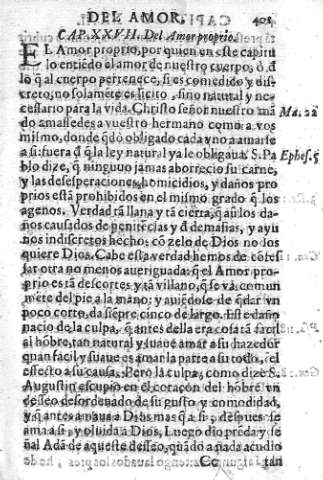 DEL AMOR. 401
CAP. XXVII. Del Amor proprio.
EL Amor proprio, por quien en este capitu
lo entiédo el amor de nuestro cuerpo, ó ď
lo q̃ al cuerpo pertenece, si es comedido y dis-
creto, no solamẽte es licito, sino natural y ne-
cessario para la vida. Christo señor nuestro mã
dó amassedes a vuestro hermano como a vos Ma. 22
mismo, donde q̃dó obligado cada vno a amarse
a si: fuera ď q̃ la ley natural ya le obligaua. S. Pa Ephes. 5
blo dize, q̃ ninguuo jamas aborrecio su carne,
y las desesperaciones, homicidios, y daños pro
prios està prohibidos en el mismo grado q̃ los
agenos. Verdad tã llana y tã cierta, q̃ aũ los da-
ños causados de penitẽcias y ď demasias, y ayu
nos indiscretos hechos, cõ zelo de Dios no los
quiere Dios. Cabe esta verdad hemos de cõfes
sar otra no menos aueriguada: q̃ el Amor pro-
prio es tã descortes y tã villano, q̃ se và comun
mẽte del pie a la mano: y auiẽdose de q̃dar vn
poco corto, da siẽpre cinco de largo. Este daño
nacio de la culpa, q̃ antes della era cosa tã facil
al hõbre, tan natural y suaue amar a su hazedor
quan facil y suaue es amar la parte a su todo, el
effecto a su causa. Pero la culpa, como dize S.
Augustin escupio en el coraçon del hõbre vn
desseo desordenado de su gusto y comodidad,
y q̃ antes amaua a Dios mas q̃ a si, despues se
ama a si, y oluida a Dios. Luego dio prẽda y se
ñal Adã de aqueste desseo, quãdo a nada acudio
Cc tan